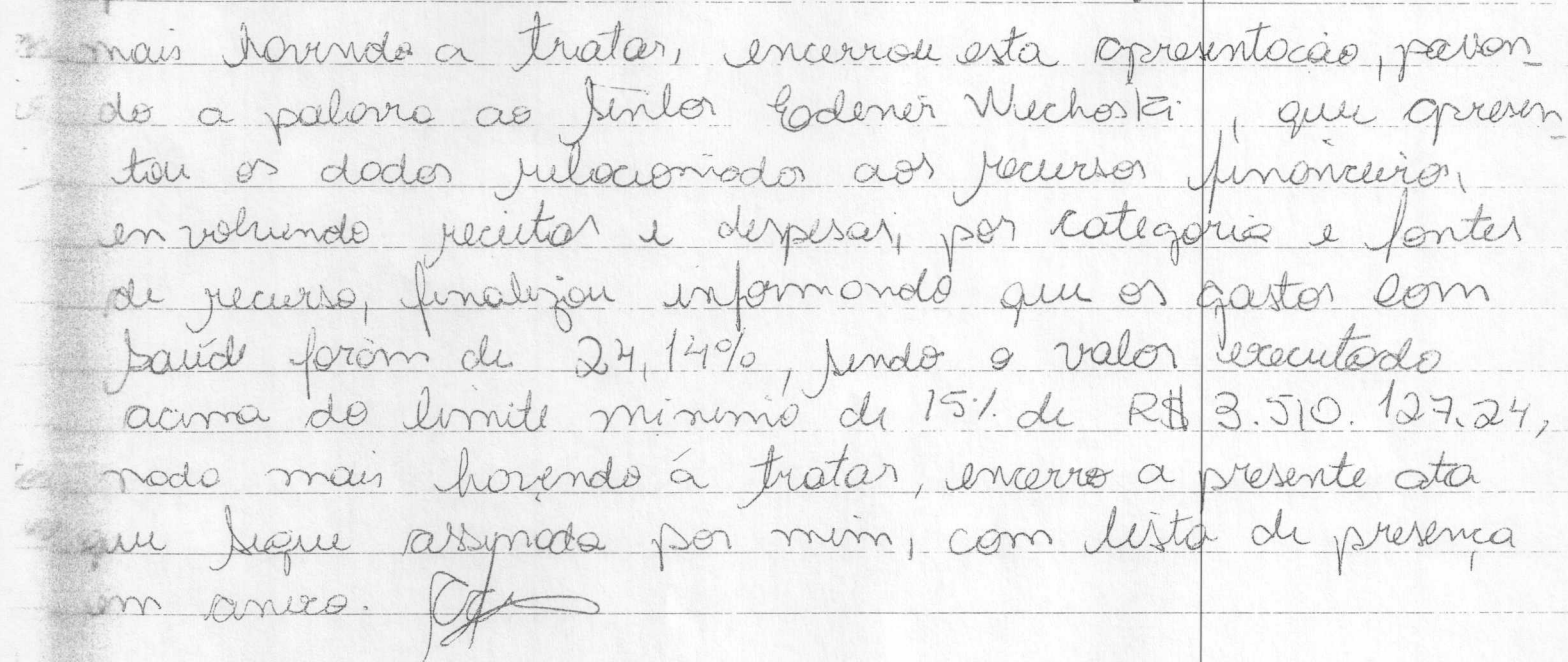 mais havendo a tratar, encerrou esta apresentação, passan-
do a palavra ao Senhor Edenir Wechoski, que apresen-
tou os dados relacionado aos recursos financeiros,
envolvendo receitas e despesas, por categoria e fontes
de recurso, finalizou informando que os gastos com
saúde foram de 24,14%, sendo o valor executado
acima do limite minimo de 15% de R$ 3.510.127.24,
nada mais havendo á tratar, encerro a presente ata
que segue assinada por mim, com lista de presença
em anexo.